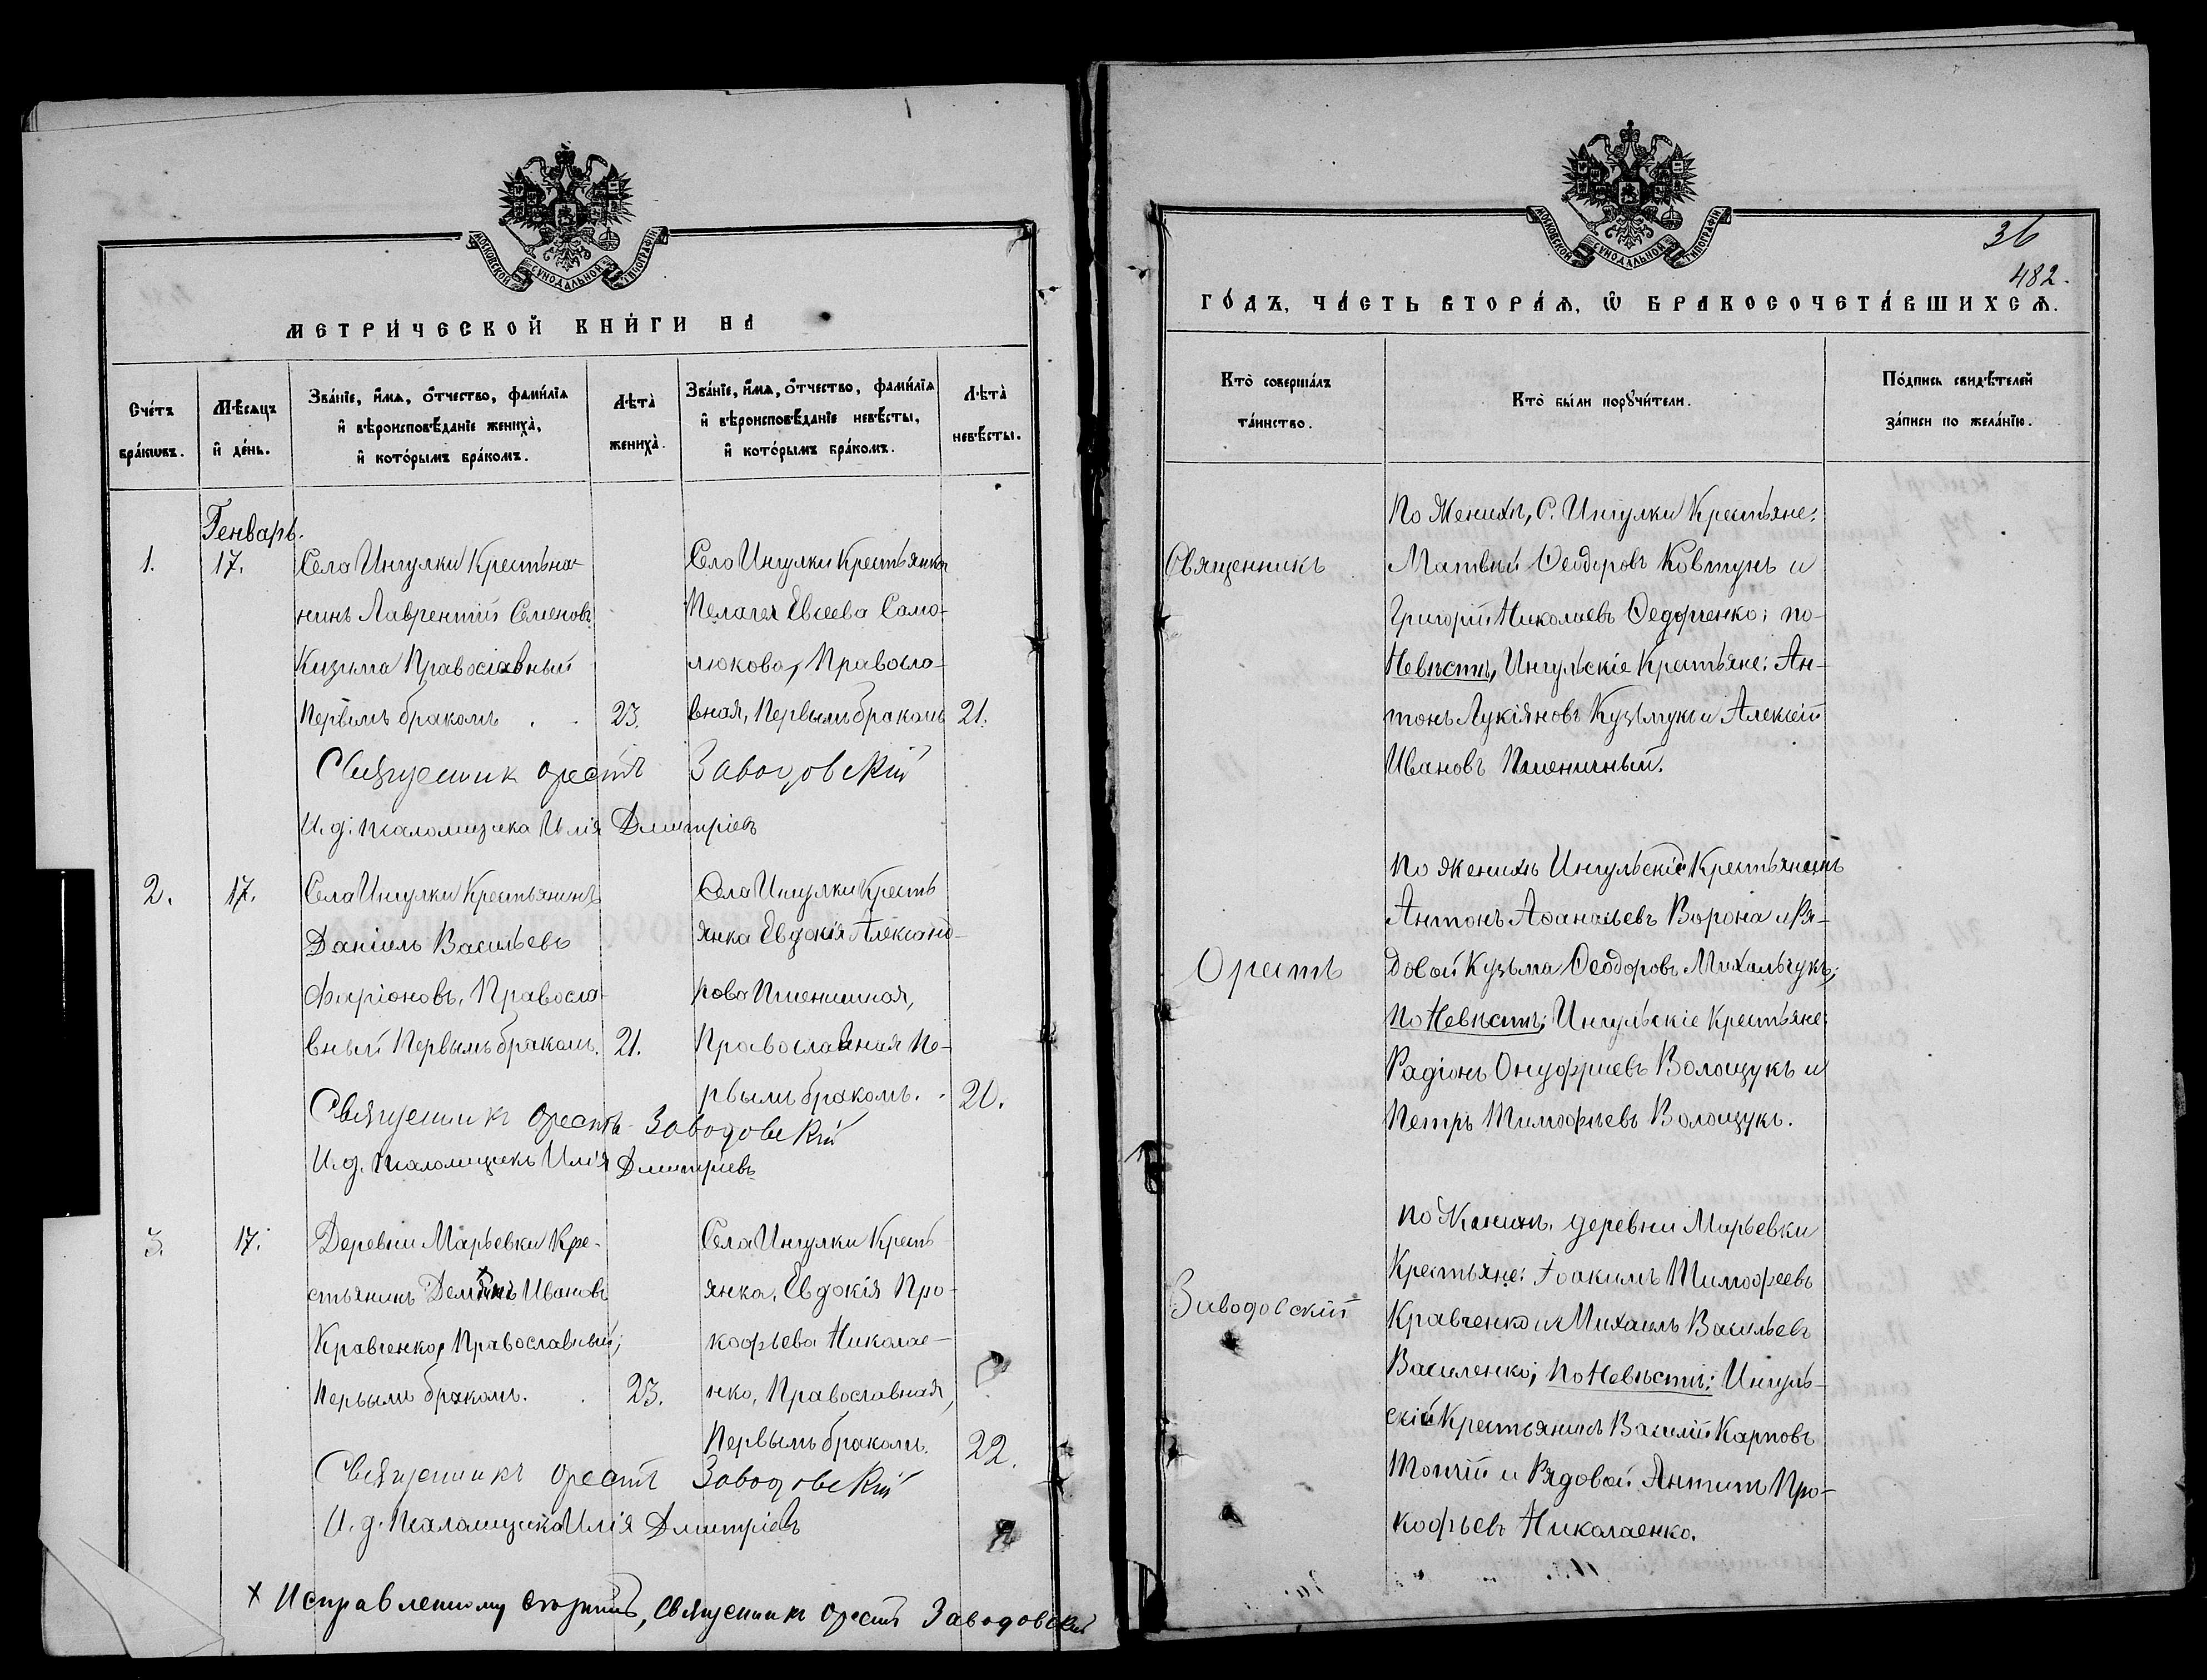 МОСКОВСКОЙ СѴНОДАЛЬНОЙ ТИПОГРАФІИ
МЕТРИ́ЧЕСКОЙ КНИ́ГИ НА̀
Сче́тъ бра́кѡвъ.
Мѣ́сяцъ и҆ де́нь.
Зва́нїе, и҆́мѧ, ѻ҆́тчество, фами́лїѧ
и҆ вѣроисповѣ́данїе жениха̀,
и҆ кото́рымъ бра́комъ.
Лѣта̀ жениха̀.
Зва́нїе, и҆́мѧ, ѻ҆́тчество, фами́лїѧ
и҆ вѣроисповѣ́данїе невѣ́сты,
и҆ кото́рымъ бра́комъ.
Лѣта̀ невѣ́сты.
Генварь.
1.
17.
Села Ингулки Крестьяа-
нинъ Лаврентій Семеновъ
Кизима Православный
Первымъ бракомъ . .
23.
Село Ингулки Крестьянка
Пелагея Евсеева Само-
люкова, Правосла-
вная, Первымъ бракомъ
21.
Священникъ Орестъ Заводовскій
И. д. Псаломщика Илія Дмитріевъ
2.
17.
Села Ингулки Крестьянинъ
Даніилъ Васильевъ
Фаріоновъ, Правосла-
вный Первымъ бракомъ.
21.
Села Ингулки Кресть
янка Евдокія Александ-
рова Пшеничная,
Православная Пе-
рвымъ бракомъ. .
20.
Священникъ Орестъ Заводовскій
И. д. Псаломщикъ Илія Дмитріевъ
3.
17.
Деревни Марьевки Кре-
стьянинъ Иванов
Кравченко, Православный;
Первымъ бракомъ. .
23.
Села Ингулки Кресть
янка, Евдокія Про-
кофьева Николае-
нко, Православная,
Первымъ бракомъ.
22.
Священникъ Орестъ Заводовскій
И. д. Псаломщика Илія Дмитріевъ
+ Исправленному вѣрить, Священникъ Орестъ Заводовскій
МОСКОВСКОЙ СѴНОДАЛЬНОЙ ТИПОГРАФІИ
36
482.
ГО́ДЪ, ЧА́СТЬ ВТОРА́Ѧ, Ѡ҆ БРАКОСОЧЕТА́ВШИХСѦ.
Кто̀ соверша́лъ
та́инство.
Кто̀ бы́ли порꙋчи́тели.
По́дпись свидѣ́телей
за́писи по жела́нїю.
Священникъ
Орестъ
Заводовскій
По Женихѣ, С. Ингулки Крестьяне:
Матвей Ѳеодоровъ Ковтунъ и
Григорій Николаевъ Ѳедорченко; по-
Невѣстѣ, Ингульскіе Крестьяне: Ан-
тонъ Лукіяновъ Кузьмукъ и Алексій
Ивановъ Пшеничный.
По Женихѣ Ингульскіе Крестьянинъ
Антонъ Аѳанасьевъ Ворона и Ря-
довой Кузьма Ѳеодоровъ Михальчукъ;
По Невѣстѣ; Ингульскіе Крестьяне:
Радіонъ Онуфріевъ Волощукъ и
Петръ Тимофѣевъ Волощукъ.
По Женихѣ, деревни Марьевки
Крестьяне: Іоакимъ Тимофеевъ
Кравченко и Михаилъ Васильевъ
Василенко; По Невѣстѣ: Ингуль-
скій Крестьянинъ Василій Карповъ
Топчій и Рядовой Антипъ Про-
кофьевъ Николаенко.